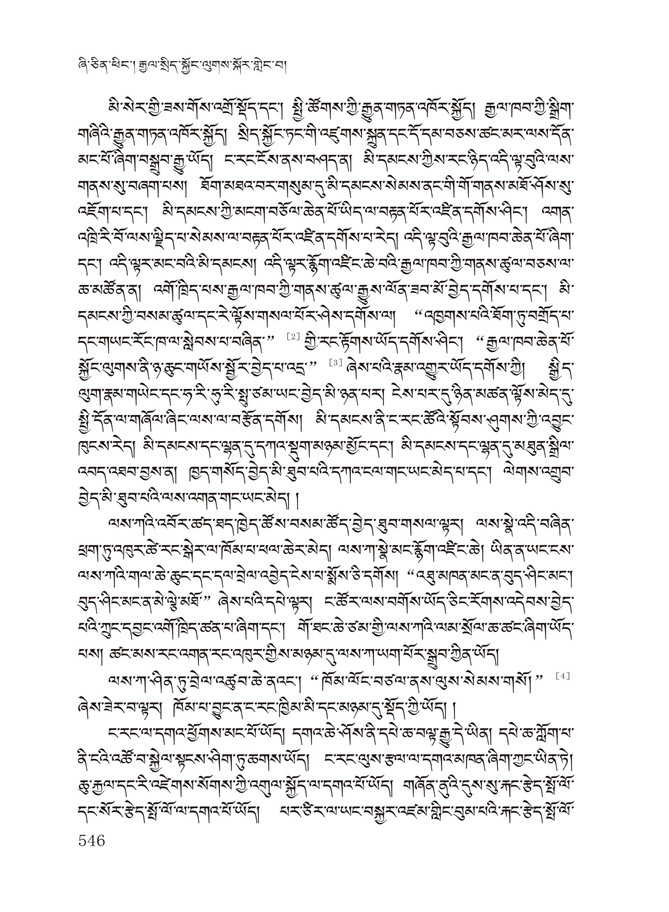 ཞི་ཅིན་ཕིང་། རྒྱལ་སྲིད་སྐྱོང་ལུགས་སྐོར་གླེང་བ།
མི་སེར་གྱི་ཟས་གོས་འགྲོ་སྡོད་དང་། སྤྱི་ཚོགས་ཀྱི་རྒྱུན་གཏན་འཁོར་སྐྱོད། རྒྱལ་ཁབ་ཀྱི་སྒྲིག་
གཞིའི་རྒྱུན་གཏན་འཁོར་སྐྱོད། སྲིད་སྐྱོང་ཏང་གི་འཛུགས་སྐྲུན་དང་དོ་དམ་བཅས་ཚང་མར་ལས་དོན་
མང་པོ་ཞིག་བསྒྲུབ་རྒྱུ་ཡོད། ང་རང་ངོས་ནས་བཤད་ན། མི་དམངས་ཀྱིས་རང་ཉིད་འདི་ལྟ་བུའི་ལས་
གནས་སུ་བཞག་པས། ཐོག་མཐའ་བར་གསུམ་དུ་མི་དམངས་སེམས་ནང་གི་གོ་གནས་མཐོ་ཤོས་སུ་
འཇོག་པ་དང་། མི་དམངས་ཀྱི་མངག་བཅོལ་ཆེན་པོ་ཡིད་ལ་བརྟན་པོར་འཛིན་དགོས་ཤིང་། འགན་
འཁྲི་རི་བོ་ལས་ལྗིད་པ་སེམས་ལ་བརྟན་པོར་འཛིན་དགོས་པ་རེད། འདི་ལྟ་བུའི་རྒྱལ་ཁབ་ཆེན་པོ་ཞིག་
དང་། འདི་ལྟར་མང་བའི་མི་དམངས། འདི་ལྟར་རྙོག་འཛིང་ཆེ་བའི་རྒྱལ་ཁབ་ཀྱི་གནས་ཚུལ་བཅས་ལ་
ཆ་མཚོན་ན། འགོ་ཁྲིད་པས་རྒྱལ་ཁབ་ཀྱི་གནས་ཚུལ་རྒྱུས་ལོན་ཟབ་མོ་བྱེད་དགོས་པ་དང་། མི་
དམངས་ཀྱི་བསམ་ཚུལ་དང་རེ་ལྟོས་གསལ་པོར་ཤེས་དགོས་ལ། “འཁྱགས་པའི་ཐོག་ཏུ་བགྲོད་པ་
དང་གཡང་རོང་ཁ་ལ་སླེབས་པ་བཞིན་” [2] གྱི་རང་རྟོགས་ཡོད་དགོས་ཤིང་། “རྒྱལ་ཁབ་ཆེན་པོ་
སྐྱོང་ལུགས་ནི་ཉ་ཆུང་གཡོས་སྦྱོར་བྱེད་པ་འདྲ་” [3] ཞེས་པའི་རྣམ་འགྱུར་ཡོད་དགོས་ཀྱི། སྙིད་
ལུག་རྣམ་གཡེང་དང་ཧ་རི་ཧུ་རི་སྤུ་ཙམ་ཡང་བྱེད་མི་ཉན་པར། ངེས་པར་དུ་ཉིན་མཚན་ལྟོས་མེད་དུ་
སྤྱི་དོན་ལ་གཞོལ་ཞིང་ལས་ལ་བརྩོན་དགོས། མི་དམངས་ནི་ང་རང་ཚོའི་སྟོབས་ཤུགས་ཀྱི་འབྱུང་
ཁུངས་རེད། མི་དམངས་དང་ལྷན་དུ་དཀའ་སྡུག་མཉམ་མྱོང་དང་། མི་དམངས་དང་ལྷན་དུ་མཐུན་སྒྲིལ་
འབད་འཐབ་བྱས་ན། ཁྱད་གསོད་བྱེད་མི་ཐུབ་པའི་དཀའ་ངལ་གང་ཡང་མེད་པ་དང་། ལེགས་འགྲུབ་
བྱེད་མི་ཐུབ་པའི་ལས་འགན་གང་ཡང་མེད། །
ལས་ཀའི་འབོར་ཚད་ཐད་ཁྱེད་ཚོས་བསམ་ཚོད་བྱེད་ཐུབ་གསལ་ལྟར། ལས་སྣེ་འདི་བཞིན་
ཕྲག་ཏུ་འཁུར་ཚེ་རང་སྒེར་ལ་ཁོམ་པ་ཕལ་ཆེར་མེད། ལས་ཀ་སྣེ་མང་རྙོག་འཛིང་ཆེ། ཡིན་ན་ཡང་ངས་
ལས་ཀའི་གལ་ཆེ་ཆུང་དང་དལ་བྲེལ་འབྱེད་ངེས་པ་སྨོས་ཅི་དགོས། “འཐུ་མཁན་མང་ན་བུད་ཤིང་མང་།
བུད་ཤིང་མང་ན་མེ་ལྕེ་མཐོ་” ཞེས་པའི་དཔེ་ལྟར། ང་ཚོར་ལས་བགོས་ཡོད་ཅིང་རོགས་འདེབས་བྱེད་
པའི་ཀྲུང་དབྱང་འགོ་ཁྲིད་ཚན་པ་ཞིག་དང་། གོ་མང་ཆེ་ཙམ་གྱི་ལས་ཀའི་ལམ་སྲོལ་ཆ་ཚང་ཞིག་ཡོད་
པས། ཚང་མས་རང་འགན་རང་འཁུར་གྱིས་མཉམ་དུ་ལས་ཀ་ཡག་པོར་སྒྲུབ་ཀྱིན་ཡོད།
ལས་ཀ་ཤིན་ཏུ་བྲེལ་འཚུབ་ཆེ་ནའང་། “ཁོམ་ལོང་བཙལ་ནས་ལུས་སེམས་གསོ།” [4]
ཞེས་ཟེར་བ་ལྟར། ཁོམ་པ་བྱུང་ན་ང་རང་ཁྱིམ་མི་དང་མཉམ་དུ་སྡོད་ཀྱི་ཡོད། །
ང་རང་ལ་དགའ་ཕྱོགས་མང་པོ་ཡོད། དགའ་ཆེ་ཤོས་ནི་དཔེ་ཆ་བལྟ་རྒྱུ་དེ་ཡིན། དཔེ་ཆ་ཀློག་པ་
ནི་ངའི་འཚོ་བ་སྐྱེལ་སྟངས་ཤིག་ཏུ་ཆགས་ཡོད། ང་རང་ལུས་རྩལ་ལ་དགའ་མཁན་ཞིག་ཀྱང་ཡིན་ཏེ།
ཆུ་རྐྱལ་དང་རི་འཛེགས་སོགས་ཀྱི་འགུལ་སྐྱོད་ལ་དགའ་པོ་ཡོད། གཞོན་ནུའི་དུས་སུ་རྐང་རྩེད་སྤོ་ལོ་
དང་སོར་རྩེད་སྤོ་ལོ་ལ་དགའ་པོ་ཡོད། པར་ཅེར་ལ་ཡང་བསྐྱར་འཛམ་གླིང་བུམ་པའི་རྐང་རྩེད་སྤོ་ལོ་
546